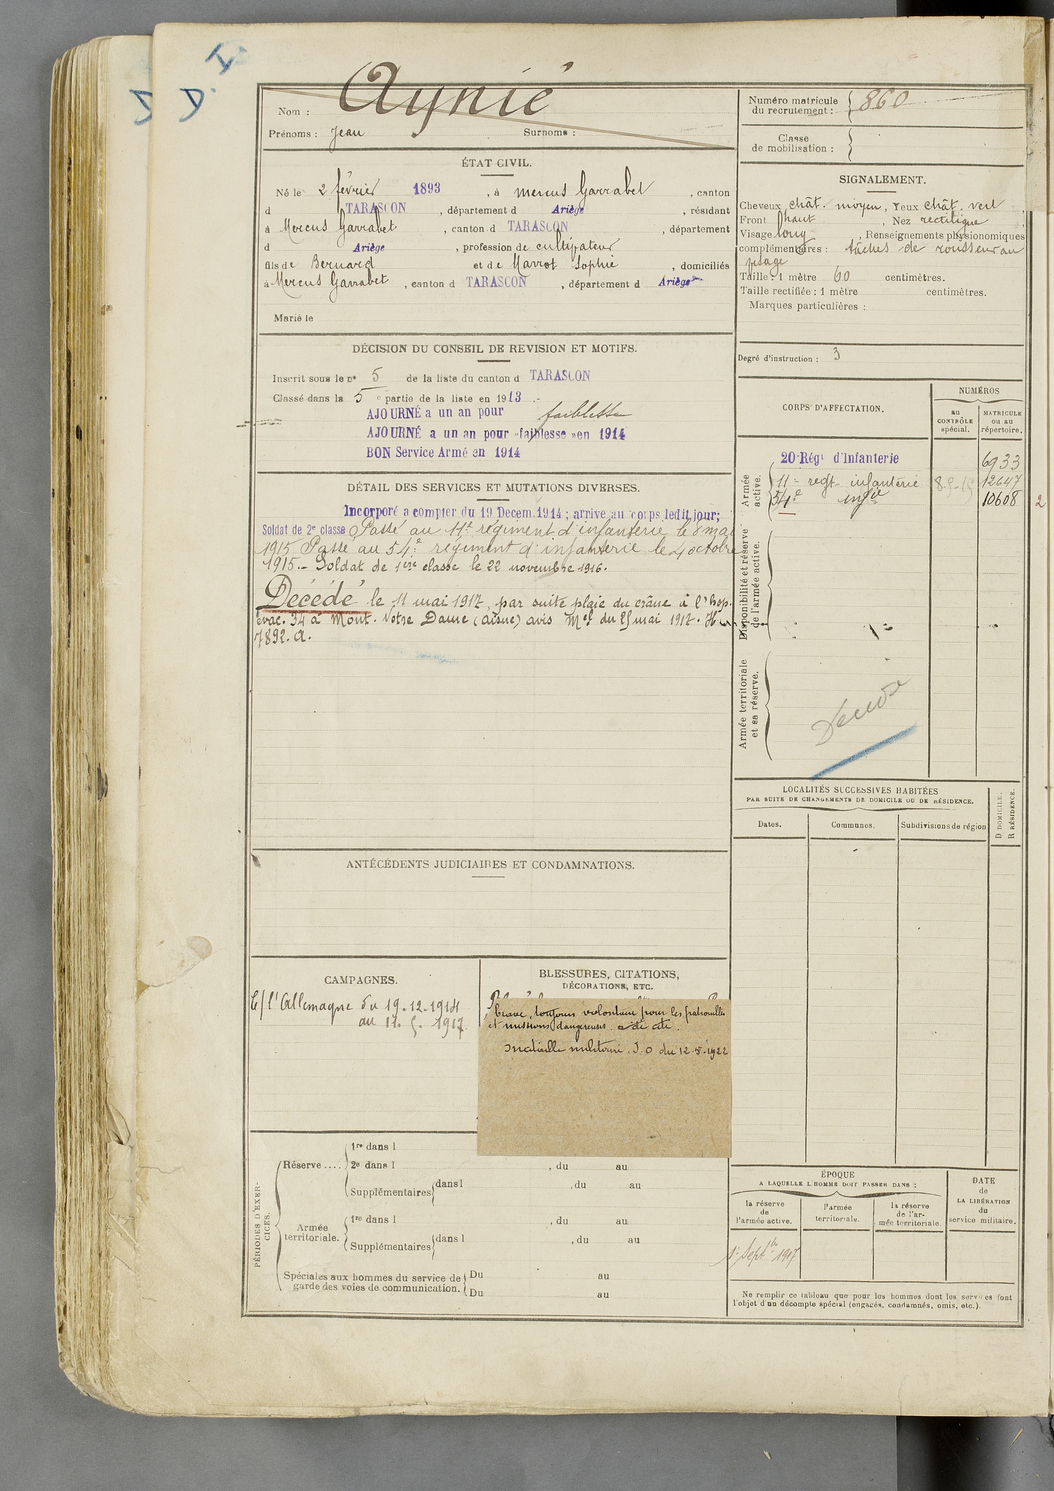 D D. I
Nom : Aynié
Prénoms : Jean Surnoms :
ÉTAT CIVIL.
Né le 2 février 1893, à Mercus Garrabet, canton
d TARASCON, département d Ariège, résidant
à Mercus Garrabet, canton d TARASCON, département
d Ariège, profession de cultivateur
fils de Bernard et de Marrot Sophie, domiciliés
à Mercus Garrabet, canton d TARASCON, département d Ariège
Marié le
DÉCISION DU CONSEIL DE REVISION ET MOTIFS.
Inscrit sous le n° 5 de la liste du canton d TARASCON
Classé dans la 5e partie de la liste en 1913.
AJOURNÉ a un an pour faiblesse
AJOURNÉ a un an pour «faiblesse» en 1914
BON Service Armé en 1914
DÉTAIL DES SERVICES ET MUTATIONS DIVERSES.
Incorporé a compter du 19 Decem. 1914 ; arrivé au corps ledit jour;
Soldat de 2e classe Passé au 11e régiment d'infanterie le 8 mai
1915 Passé au 54e régiment d'infanterie le 4 octobre
1915.- Soldat de 1ère classe le 22 novembre 1916.
Décédé le 11 mai 1917, par suite plaie du crâne à l'hop.
évac. 34 à Mont. Notre Dame (aisne) avis Mel du 25 mai 1917.
7892. A.
ANTÉCÉDENTS JUDICIAIRES ET CONDAMNATIONS.
CAMPAGNES.
C/ l'Allemagne du 19.12.1914
au 11. 5. 1917
BLESSURES, CITATIONS,
DÉCORATIONS, ETC.
brave, toujours volontaire pour les patrouilles
et missions dangereuses. a été cité.
Médaille militaire. J.O du 12-5-1922
PÉRIODES D'EXERCICES.
Réserve .... 1re dans l
2e dans l , du au
Supplémentaires dans l , du au
Armée territoriale. 1re dans l , du au
Supplémentaires dans l , du au
Spéciales aux hommes du service de garde des voies de communication. Du au
Du au
Numéro matricule du recrutement : 860
Classe de mobilisation :
SIGNALEMENT.
Cheveux chât. moyen, Yeux chât. vert
Front haut, Nez rectiligne
Visage long, Renseignements physionomiques
complémentaires : tâches de rousseur au
visage
Taille : 1 mètre 60 centimètres.
Taille rectifiée : 1 mètre centimètres.
Marques particulières :
Degré d'instruction : 3
CORPS D'AFFECTATION.
NUMÉROS
au CONTRÔLE spécial.
MATRICULE ou au répertoire.
Armée active.
20 Régt d'Infanterie 6933
11e regt infanterie 12647
54e infie 10608
2
Disponibilité et réserve de l'armée active.
Armée territoriale et sa réserve.
LOCALITÉS SUCCESSIVES HABITÉES
PAR SUITE DE CHANGEMENTS DE DOMICILE OU DE RÉSIDENCE.
Dates. Communes. Subdivisions de région
D DOMICILE.
R RÉSIDENCE.
ÉPOQUE
A LAQUELLE L'HOMME DOIT PASSER DANS :
la réserve de l'armée active.
l'armée territoriale.
la réserve de l'armée territoriale.
DATE de LA LIBÉRATION du service militaire.
1er Septbre 1917
Ne remplir ce tableau que pour les hommes dont les services font
l'objet d'un décompte spécial (engagés, condamnés, omis, etc.).